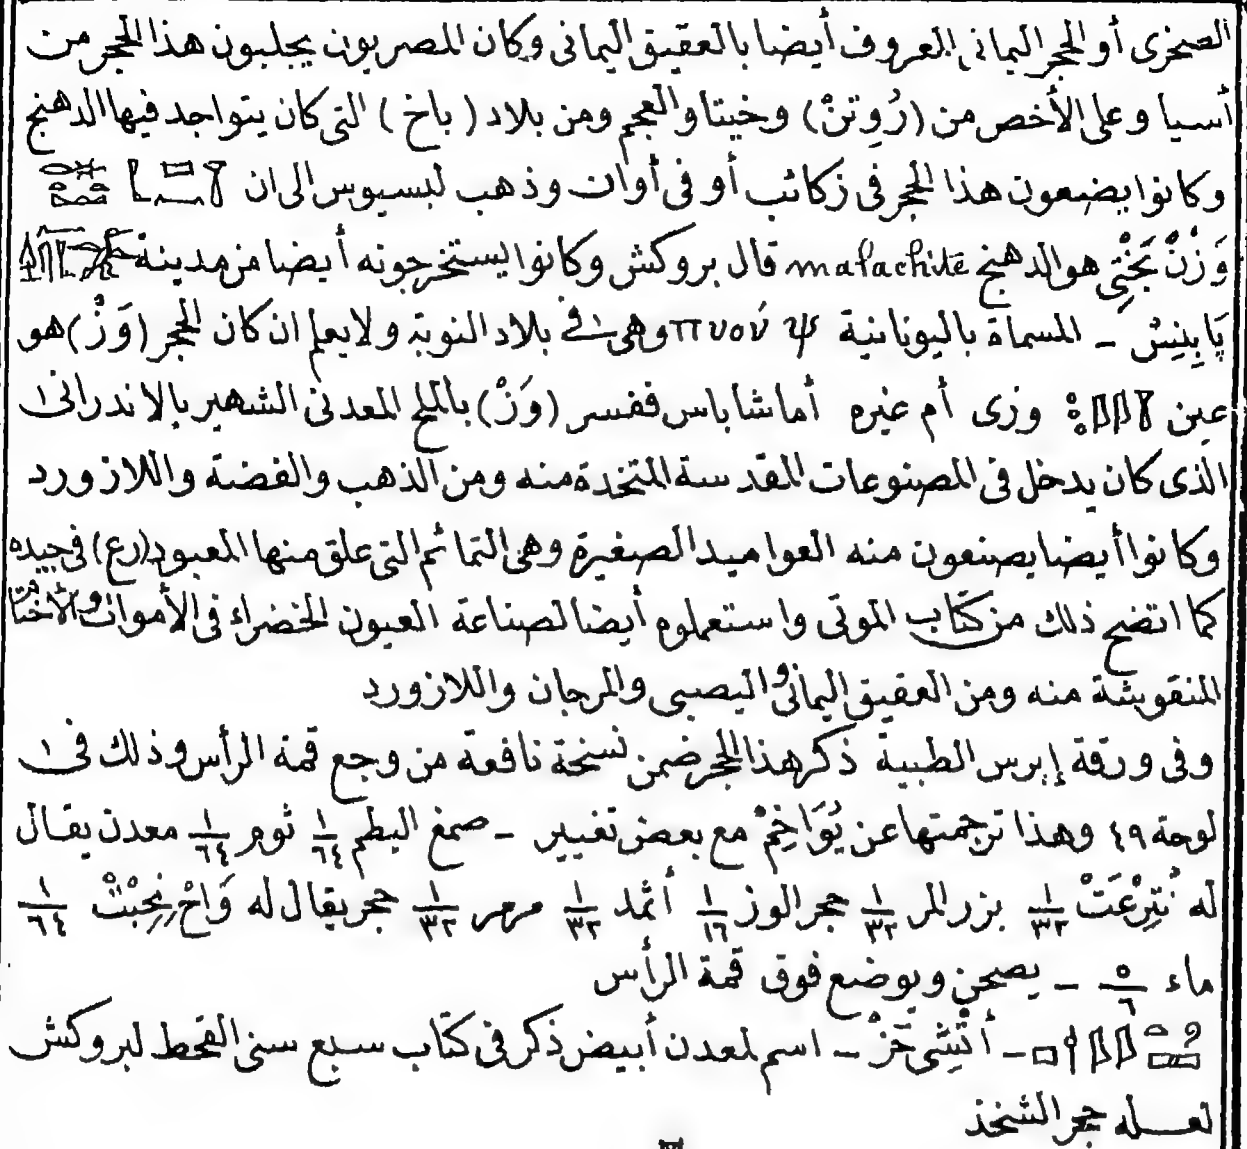 الصخرى أو الحجر اليمانى المعروف أيضا بالعقيق اليمانى وكان المصريون يجلبون هذا الحجر من
أسيا وعلى الأخص من (رُوتِنْ) وخيتا والعجم ومن بلاد (باخ) التى كان يتواجد فيها الدهنج
وكانوا يضعون هذا الحجر فى زكائب أو فى أوان وذهب لبسيوس الى ان
وَزْنْ بَخْتِى هو الدهنج malachite قال بروكش وكانوا يستخرجونه أيضا من مدينة
پَابِنِسْ ـ المسماة باليونانية ψ πνού وهى فى بلاد النوبة ولا يعلم ان كان الحجر (وَزْ) هو
عين وزى أم غيره أما شاباس ففسر (وَزْ) بالملح المعدنى الشهير بالاندرانى
الذى كان يدخل فى المصنوعات المقدسة المتخذة منه ومن الذهب والفضة واللازورد
وكانوا أيضا يصنعون منه العواميد الصغيرة وهى التمائم التى علق منها المعبود (رع) فى جيده
كما اتضح ذلك من كتاب الموتى واستعملوه أيضا لصناعة العيون الخضراء فى الأموات والأختام
المنقوشة منه ومن العقيق اليمانى واليصبى والمرجان واللازورد
وفى ورقة إبرس الطبية ذكر هذا الحجر ضمن نسخة نافعة من وجع قمة الرأس وذلك فى
لوحة ٤٩ وهذا ترجمتها عن يُوَاخِمْ مع بعض تغيير ـ صمغ البطم ١/٦٤ ثوم ١/٦٤ معدن يقال
له نُتِرْعَتْ ١/٣٢ بزر المر ١/٣٢ حجر الوز ١/١٦ أثمد ١/٣٢ مرمر ١/٣٢ حجر يقال له وَاحْ نِحِبْتْ ١/٦٤
ماء ٥/٦ ـ يصحن ويوضع فوق قمة الرأس
ـ أَتْشِى خَزْ ـ اسم لمعدن أبيض ذكر فى كتاب سبع سنى القحط لبروكش
لعله حجر الشخذ